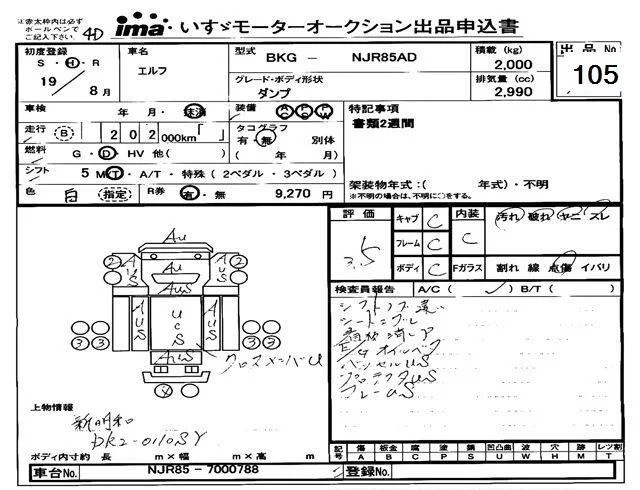 ※赤太枠内は必ず
ボールペンで
ご記入下さい。
4D
ima いすゞモーターオークション出品申込書
初度登録 S・H・R 19／8月
車名 エルフ
型式 BKG － NJR85AD
積載 (kg) 2,000
グレード・ボディ形状 ダンプ
排気量 (cc) 2,990
出品No 105
車検 年・月・抹消
装備 AC PS PW
特記事項
書類2週間
走行 B 202,000km「 」
タコグラフ 有・無 別体 ( 年 月)
燃料 G・D・HV 他( )
シフト 5 MT・A/T・特殊 (2ペダル・3ペダル)
色 白 (指定) R券 有・無 9,270 円
架装物年式:( 年式)・不明
※不明の場合は、不明に○をする。
Au
Au
AuS
AuS
AuS
UCS
AuS
AuS
AuS
2 2
3 3 3 3
クロスメンバU
評価 3.5
キャブ C
フレーム C
ボディ C
内装 C
Fガラス
汚れ 破れ ヤニ スレ
割れ 線 点傷 イバリ
検査員報告 A/C( ✓ ) B/T( )
シフトノブ違い
E/gオイル
バンセルUS
プロテクタUS
フレームS
上物情報
新明和
DR2-0110SY
ボディ内寸約 長 m×幅 m×高 m
記号 傷 板金 腐 塗 錆 凹凸曲 波 穴 跡 レツ割
A B C P S U W H M T
車台No. NJR85－7000788
登録No.